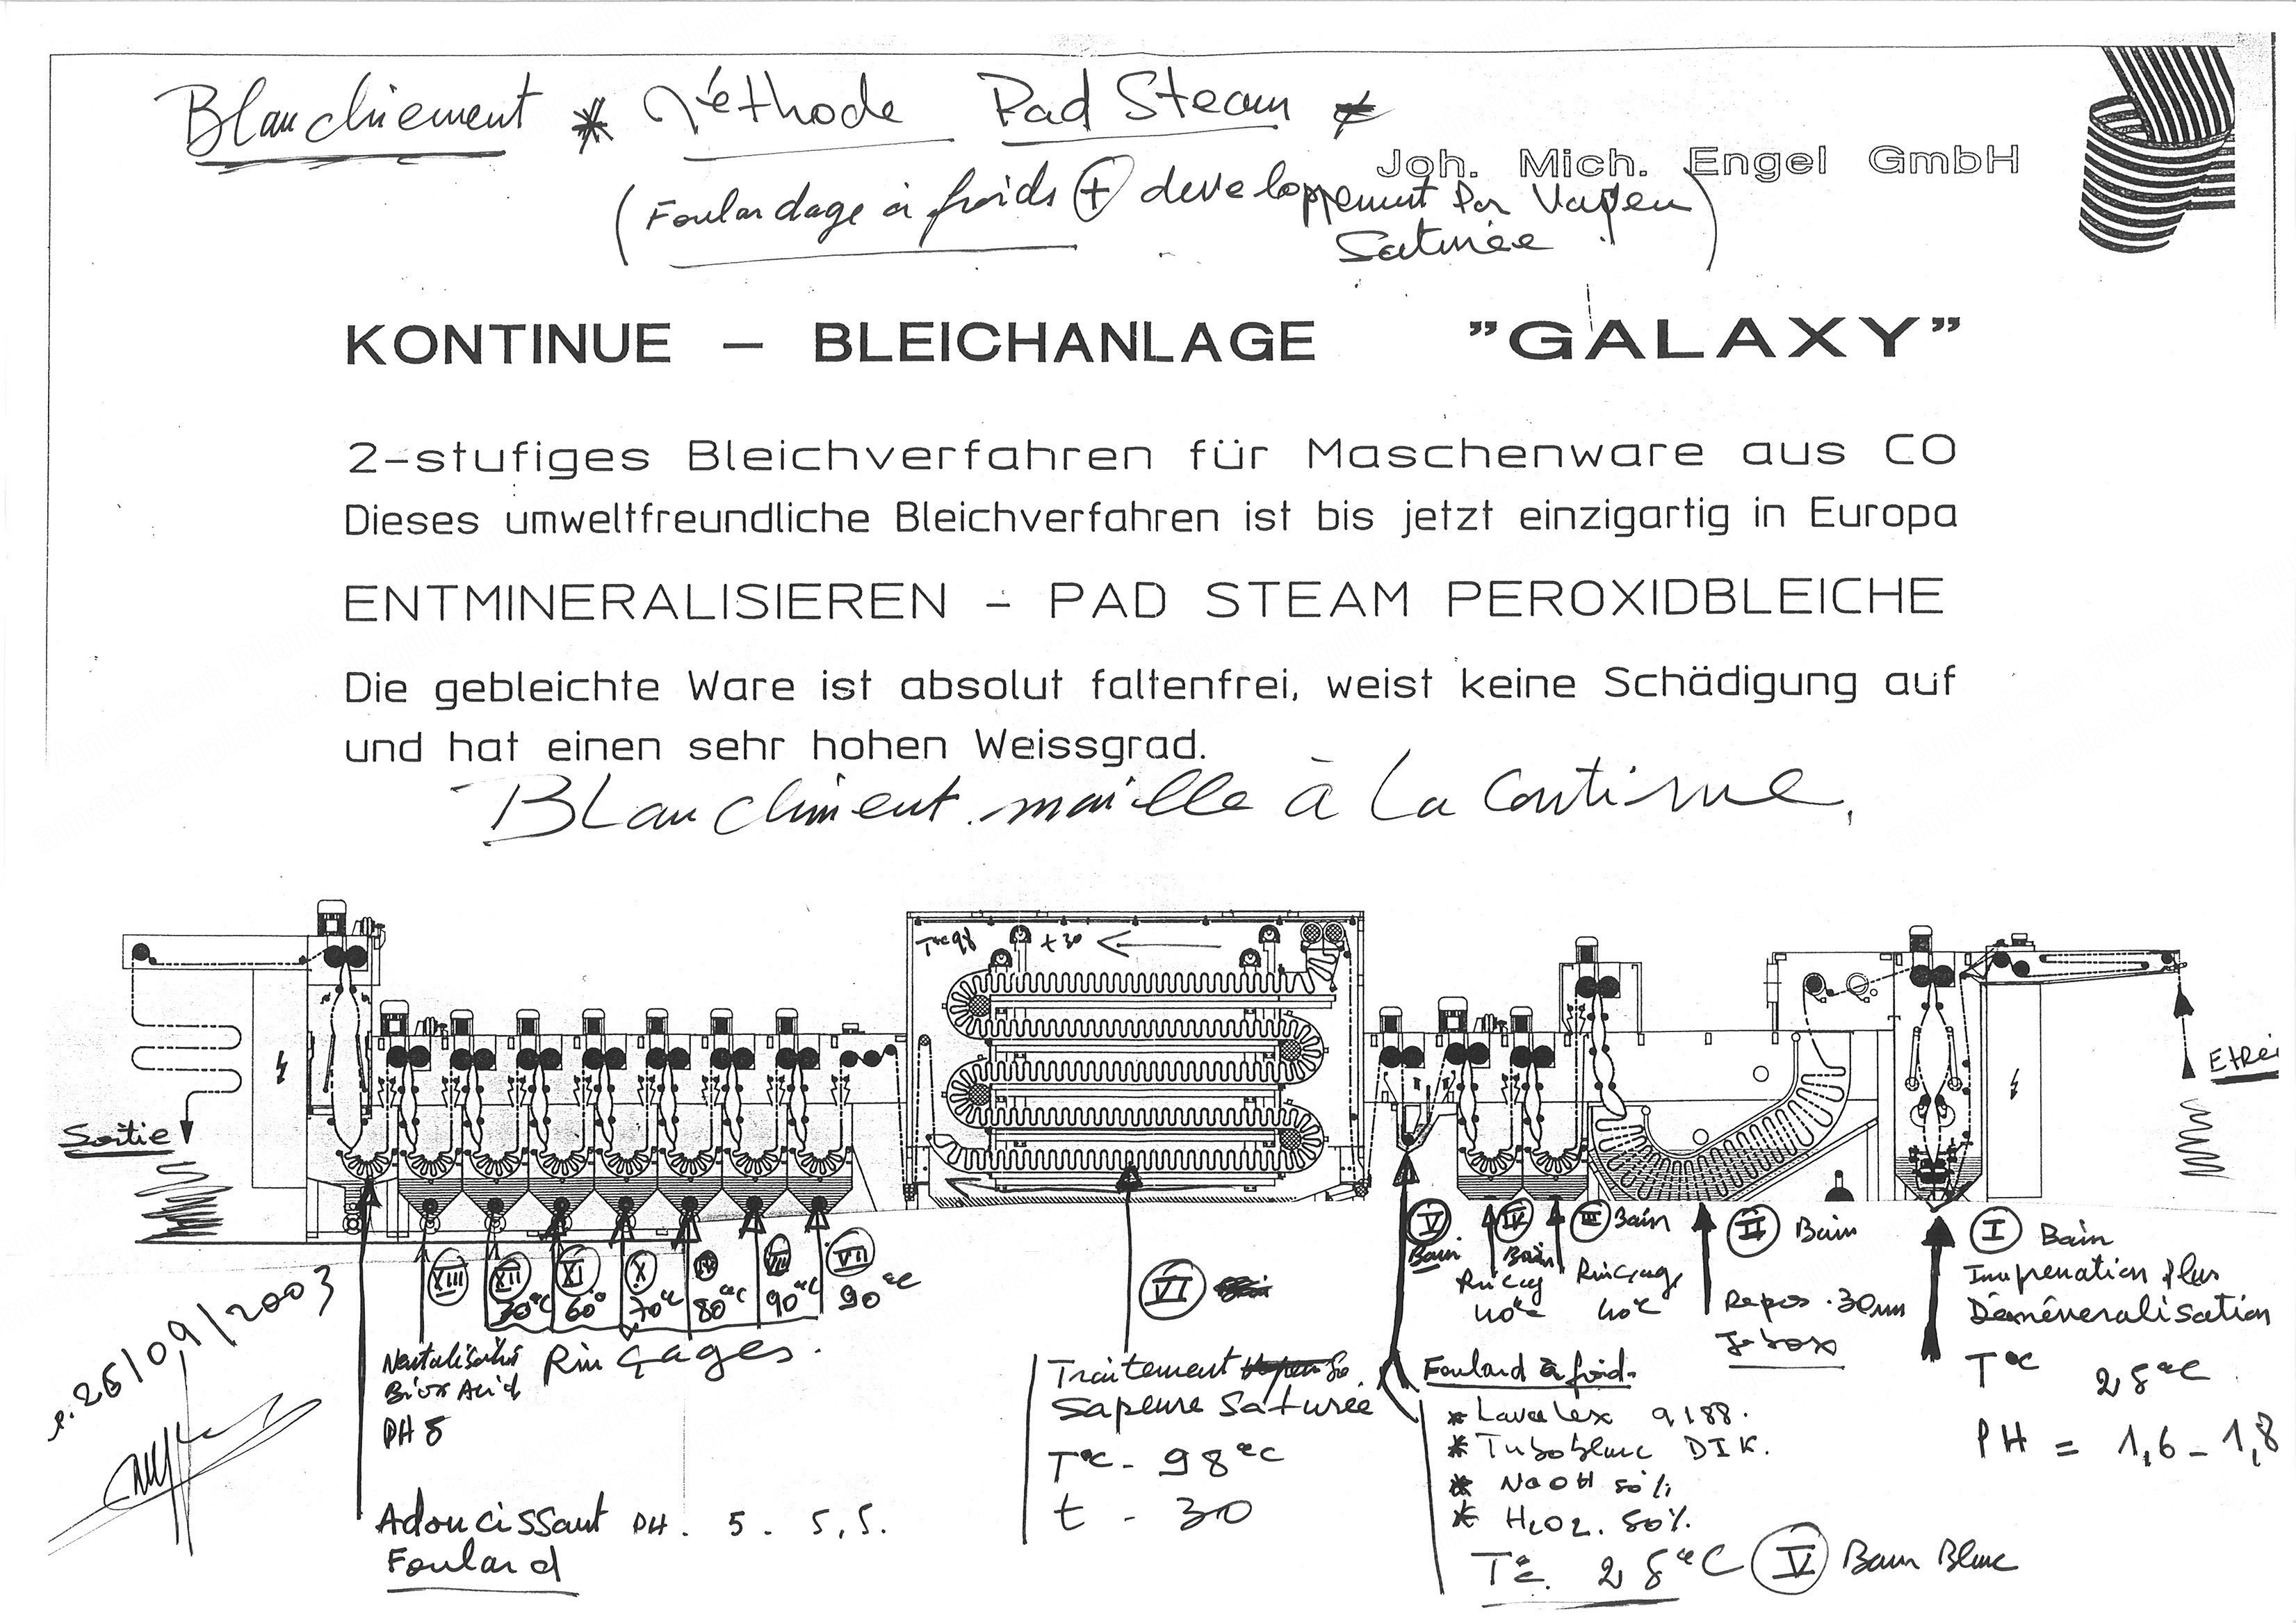 Blanchiement * Méthode Pad Steam *
Joh. Mich. Engel GmbH
(Foulardage à froids + developpement Par Vapeu
Saturée)
KONTINUE – BLEICHANLAGE "GALAXY"
2-stufiges Bleichverfahren für Maschenware aus CO
Dieses umweltfreundliche Bleichverfahren ist bis jetzt einzigartig in Europa
ENTMINERALISIEREN - PAD STEAM PEROXIDBLEICHE
Die gebleichte Ware ist absolut faltenfrei, weist keine Schädigung auf
und hat einen sehr hohen Weissgrad.
Blanchiment maille à La Continue.
T°c 98 t 30
Sortie
Etrei
XIII XII XI X IX VIII VII
30°C 60° 70°c 80°C 90°C 90°C
Rinçages.
Neutalisation
Biox Acid
PH 8
Adoucissant PH. 5. 5,5.
Foulard
26/09/2003
VI
Traitement
Sapeure Saturée
T°c - 98°C
t - 30
V Bain
IV Bain
Rinçag
40°c
III Bain
Rinçage
40°c
II Bain
Repos . 30mn
J-box
I Bain
Imprenation plus
Déméneralisation
T°c 28°C
PH = 1,6 - 1,8
Foulard à froid.
* Lavalex 9188.
* Tuboblanc DIK.
* NaOH 50%
* H2O2. 50%.
T°c. 28°C V Bain Blanc